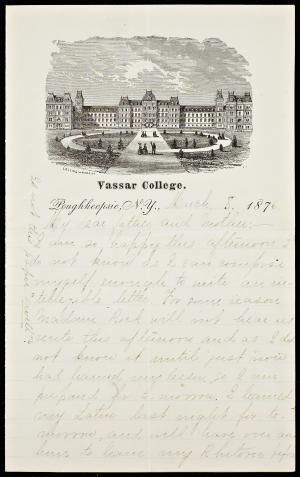 Vassar College.
Poughkeepsie, N.Y., March 8, 1876
My dear father and mother:—
I am so happy this afternoon I do
not know as I can compose
myself enough to write an in-
telligible letter. For some reason
Madame Rock will not hear us
recite this afternoon and as I did
not know it until just now
had learned my lesson, so I am
prepared for to-morrow. I learned
my Latin last night for to-
morrow, and will have one an
hour to learn my Rhetoric
do not this